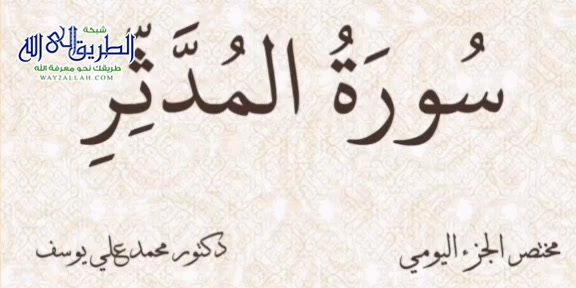 شبكة
الطريق إلى الله
طريقك نحو معرفة الله
WAY2ALLAH.COM
سُورَةُ المُدَّثِّرِ
مختصر الجزء اليومي
دكتور محمد علي يوسف